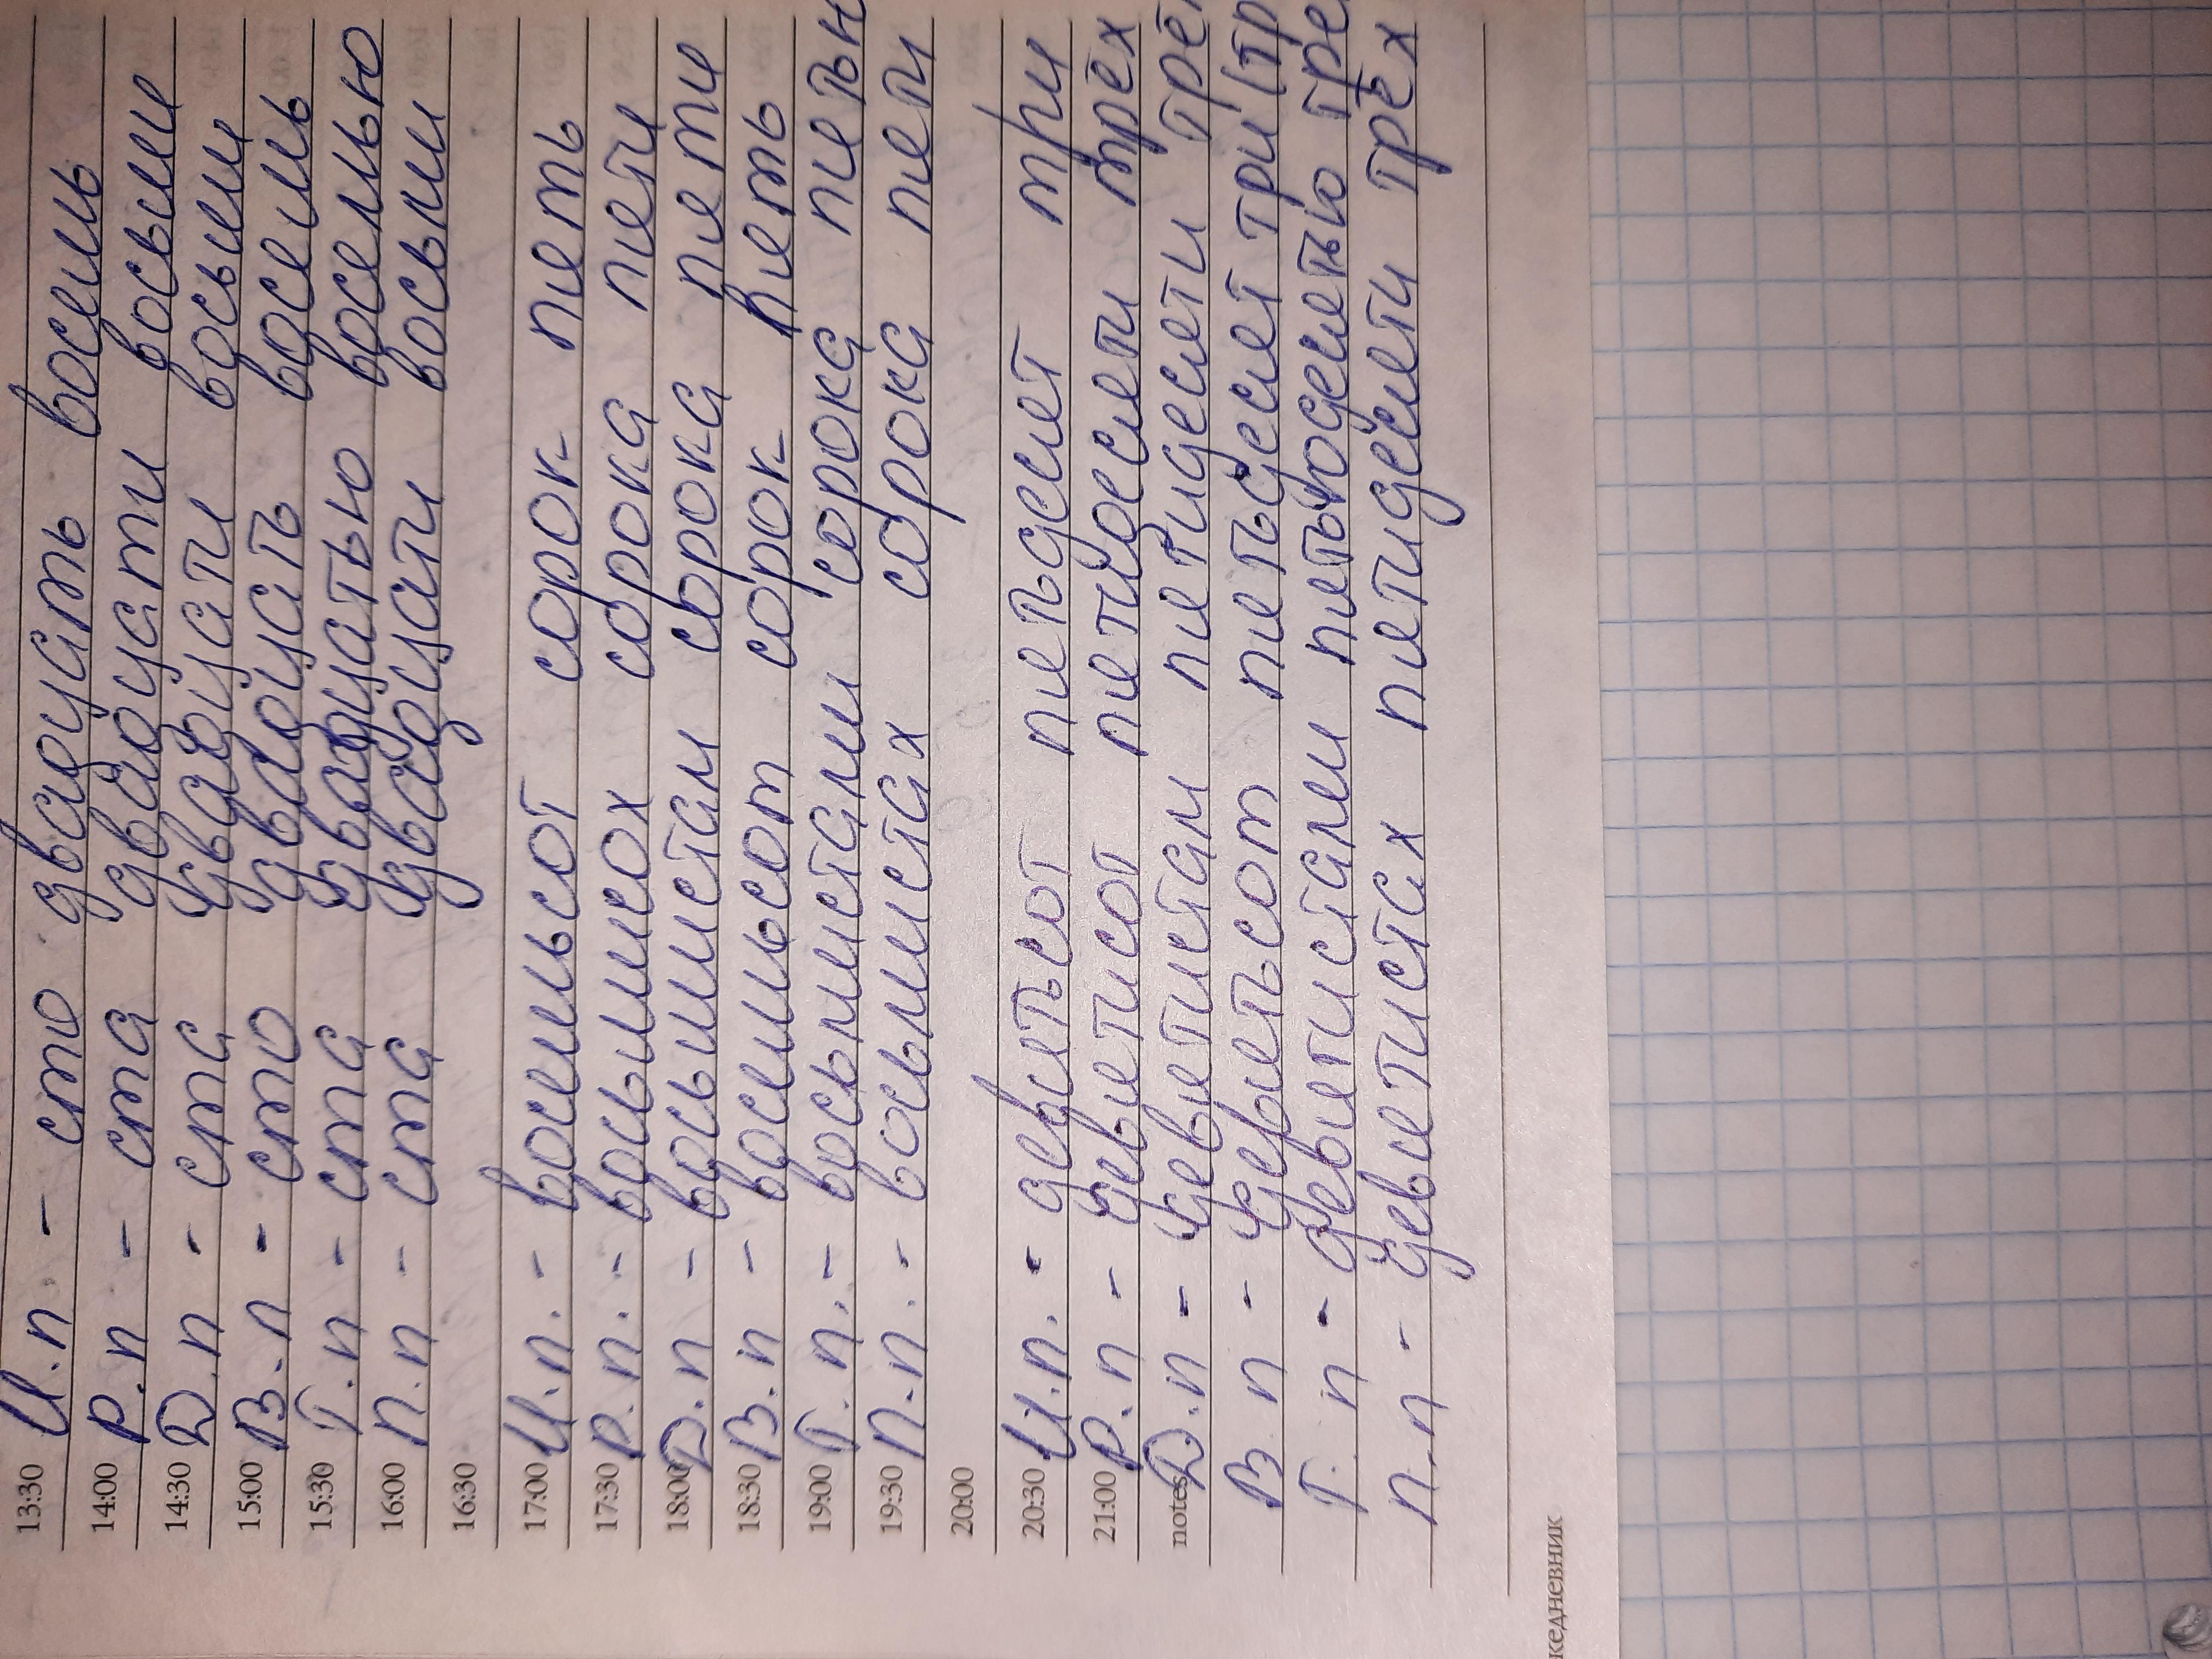 13:30 И.п - сто двадцать восемь
14:00 Р.п - ста двадцати восьми
14:30 Д.п - ста двадцати восьми
15:00 В.п - сто двадцать восемь
15:30 Т.п - ста двадцатью восемью
16:00 П.п - ста двадцати восьми
16:30
17:00 И.п. - восемьсот сорок пять
17:30 Р.п. - восьмисох сорока пяти
18:00 Д.п - восьмистам сорока пяти
18:30 В.п - восемьсот сорок пять
19:00 Т.п. - восьмистами сорока пятью
19:30 П.п. - восьмистах сорока пяти
20:00
20:30 И.п. - девятьсот пятьдесят три
21:00 Р.п - девятисот пятидесяти трёх
notes Д.п - девятистам пятидесяти
В п - девятьсот пятьдесят три
Т. п - девятистами пятьюдесятью
П.п - девятистах пятидесяти трёх
жедневник